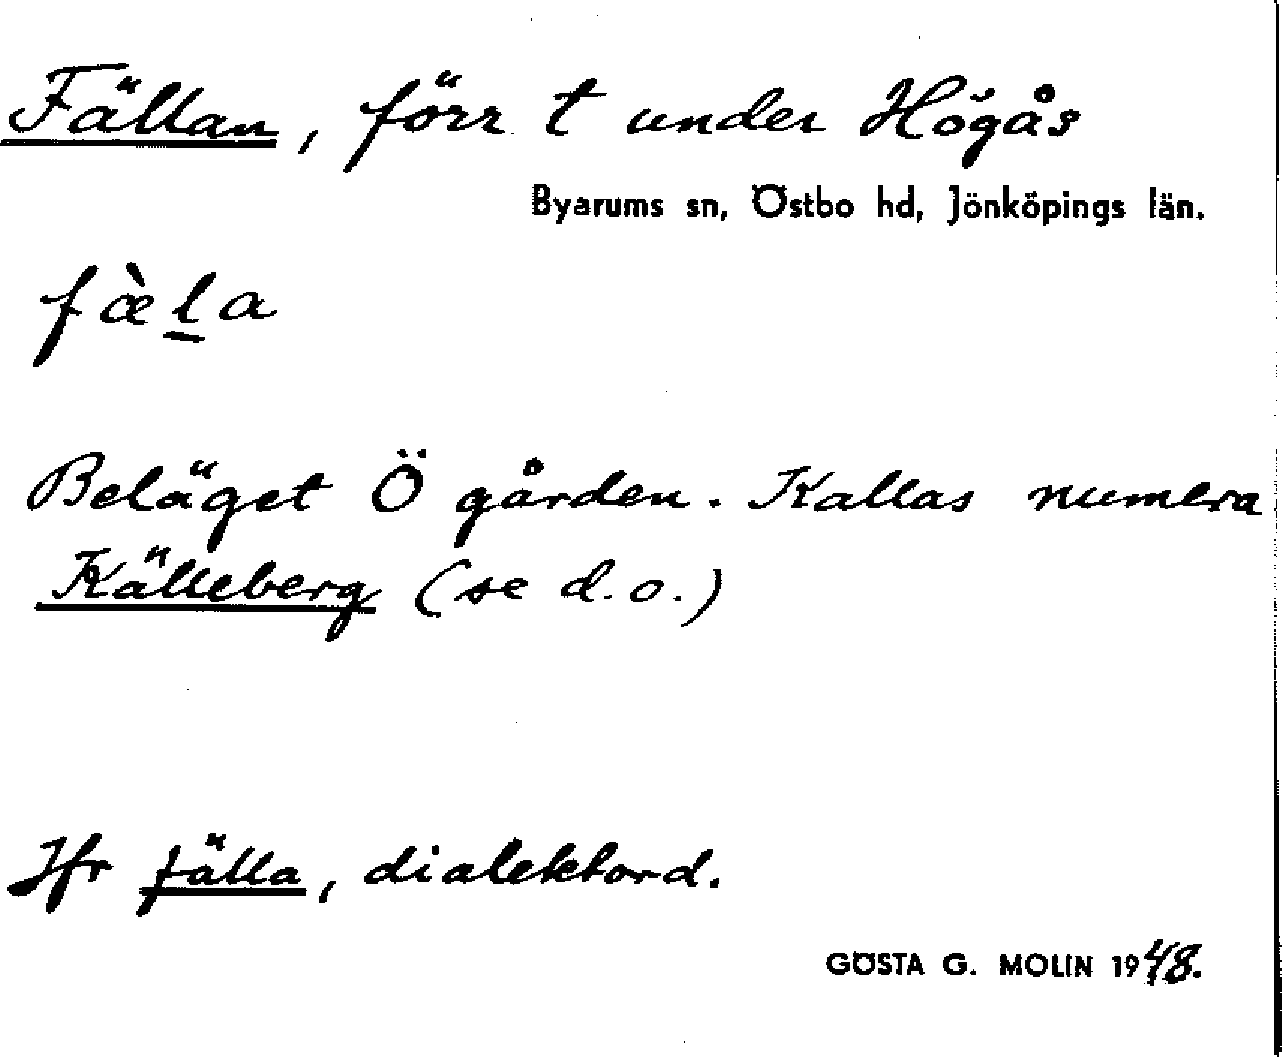 Fällan, förr t under Högås
Byarums sn, Östbo hd, Jönköpings län.
fæ̀l̠a
Beläget Ö gården. Kallas numera
Källeberg (se d.o.)
Jfr fälla, dialektord.
GÖSTA G. MOLIN 1948.